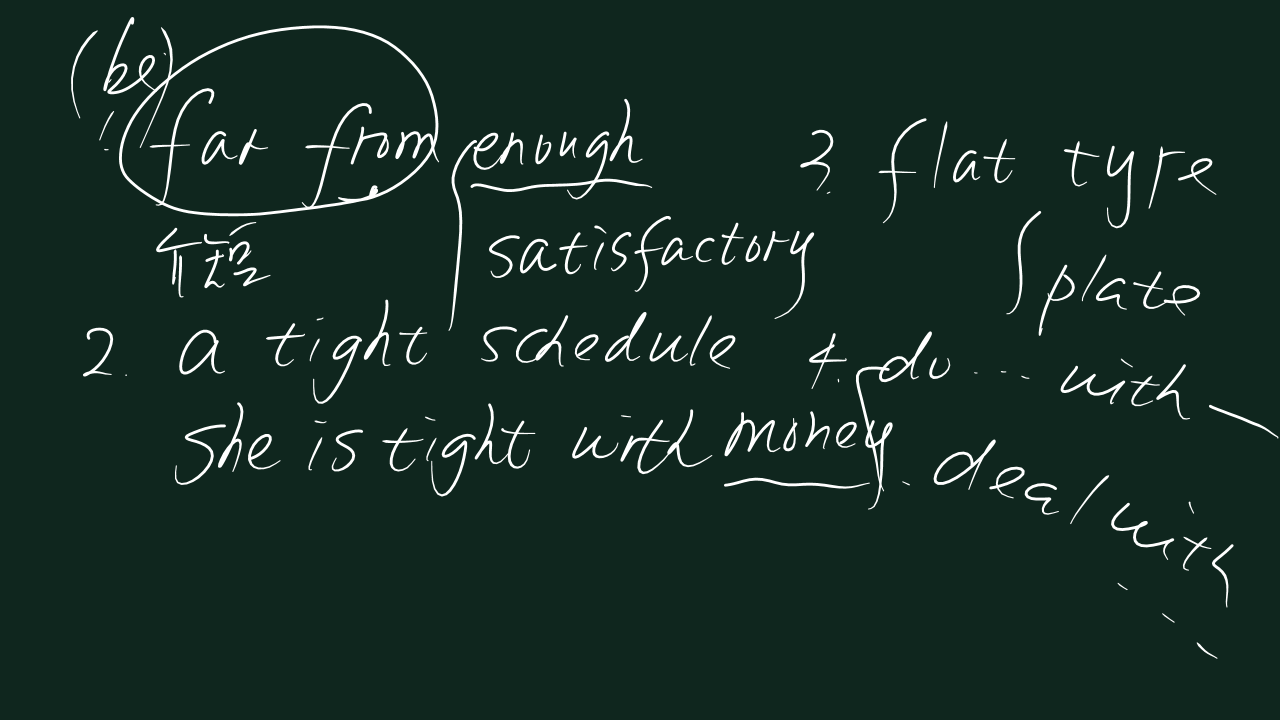 (be)
1. far from enough
satisfactory
2. a tight schedule
she is tight with money.
3. flat tyre
plate
4. do ... with
deal with ...